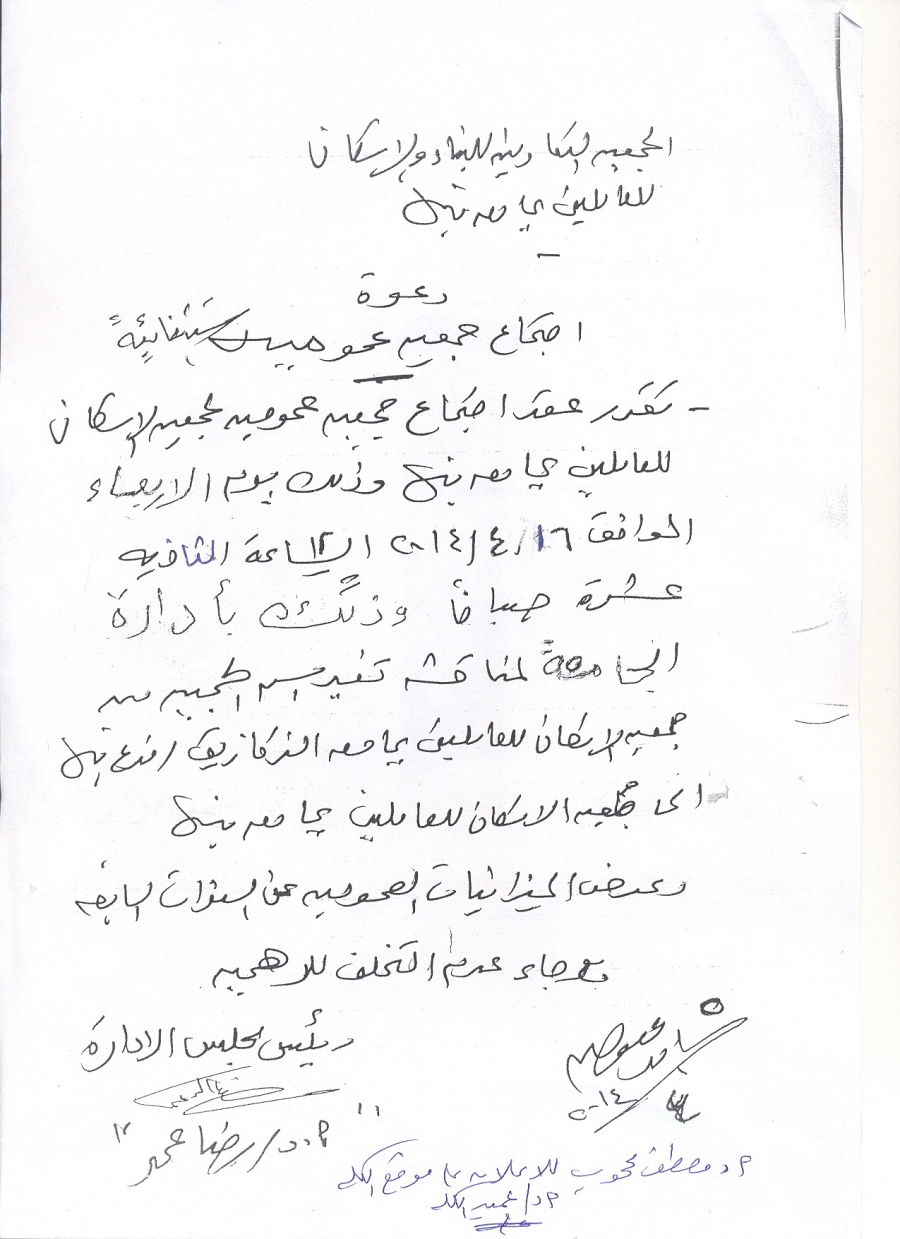 الجمعيه التعاونيه للبناء والإسكان
للعاملين بجامعه بنها
دعوة
اجتماع جمعيه عموميه إستثنائيةً
- تقرر عقد اجتماع جمعيه عموميه لجمعيه الإسكان
للعاملين بجامعه بنها وذلك يوم الاربعاء
الموافق ١٦/٤/٢٠١٤ الساعة ١٢ الثانيه
عشرة صباحاً وذلك بأدارة
الجامعة لمناقشه تغير اسم الجمعيه من
جمعيه الاسكان للعاملين بجامعه الزقازيق / فرع بنها
الى جمعيه الاسكان للعاملين بجامعه بنها
وعرض الميزانيات العموميه عن السنوات السابقه
برجاء عدم التخلف للاهميه
رئيس مجلس الادارة
٢٠١٤
" أ.د/ رضا "
د مصطفى للاعلان على موقع الكليه
أ.د/ عميد الكليه